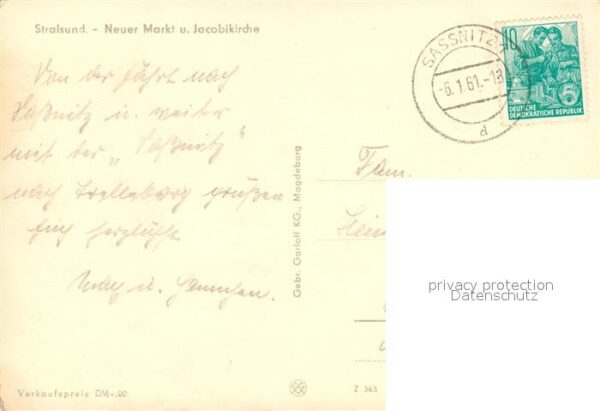 Stralsund. - Neuer Markt u. Jacobikirche
Von der Fahrt nach
Saßnitz u. weiter
mit der „Saßnitz"
nach Trelleborg grüßen
Euch herzlichst
u.
Fam.
Hein
Gebr. Garloff KG., Magdeburg
SASSNITZ
-6.1.61.-18
d
10
DEUTSCHE
DEMOKRATISCHE REPUBLIK
5
privacy protection
Datenschutz
Verkaufspreis DM-.20
Z 365